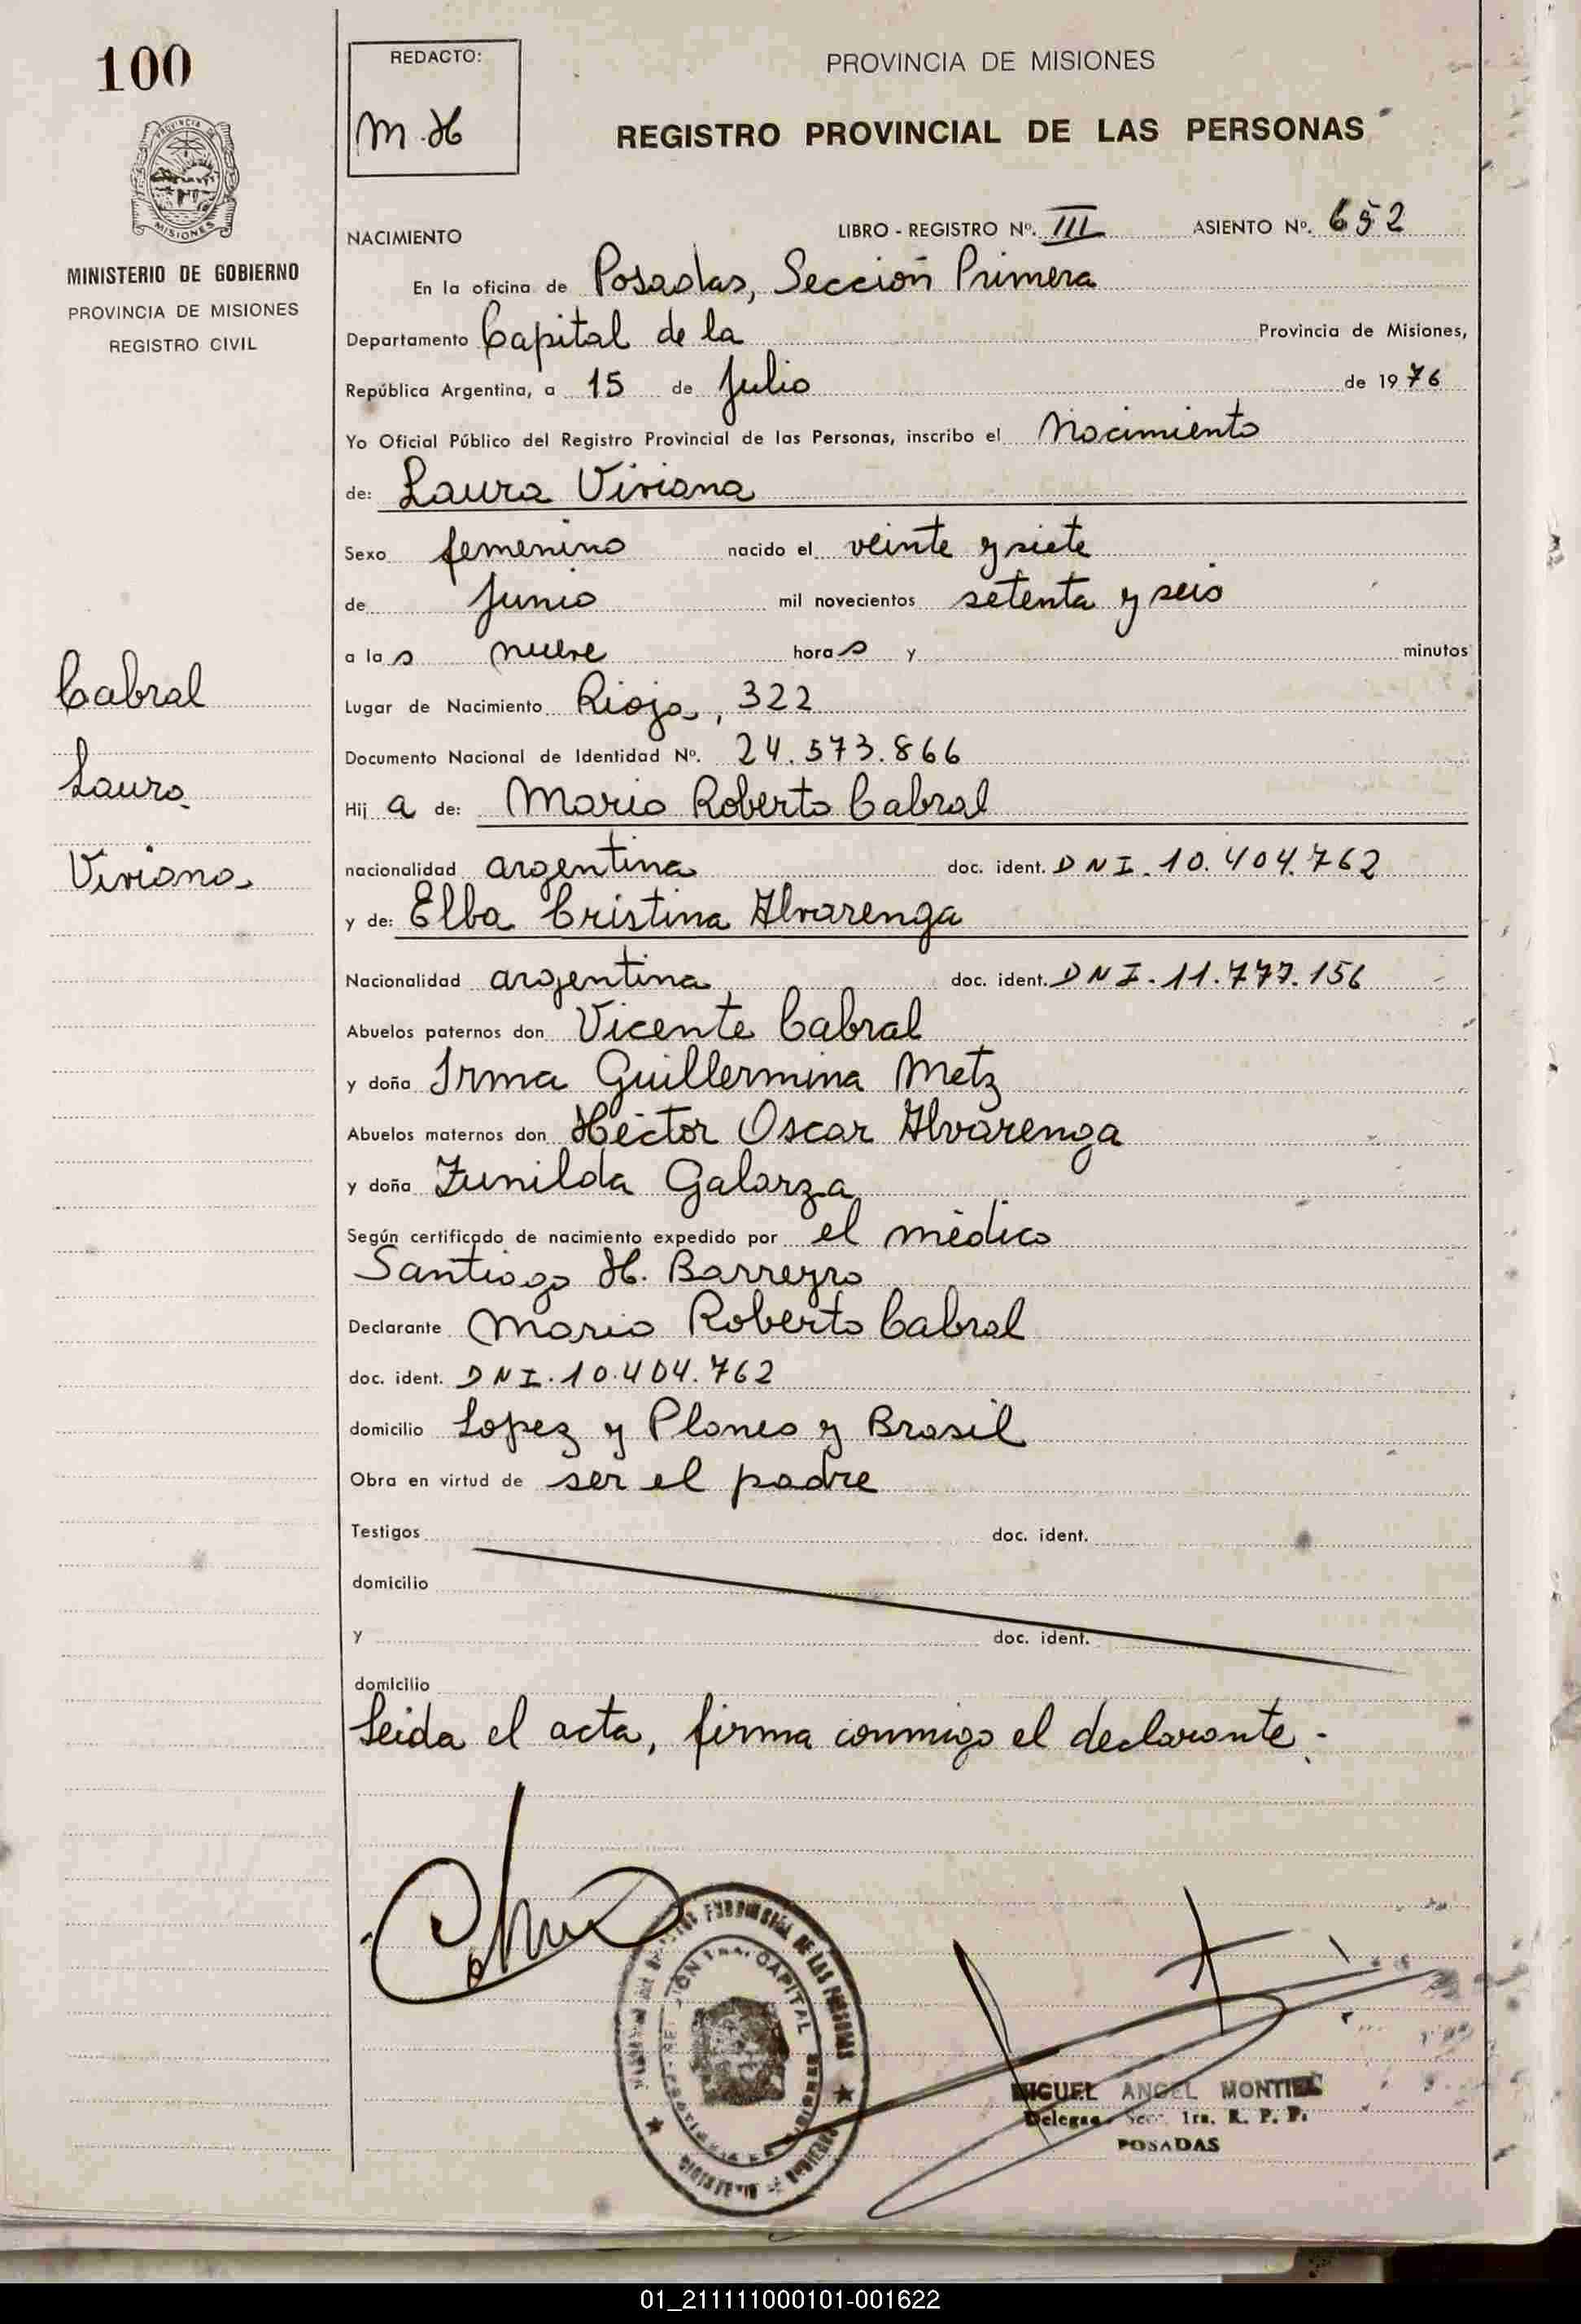 100
REDACTO:
M.H
PROVINCIA DE MISIONES
REGISTRO PROVINCIAL DE LAS PERSONAS
MISIONES
MINISTERIO DE GOBIERNO
PROVINCIA DE MISIONES
REGISTRO CIVIL
Cabral
Laura
Viviana
NACIMIENTO LIBRO - REGISTRO Nº. III ASIENTO Nº. 652
En la oficina de Posadas, Sección Primera
Departamento Capital de la Provincia de Misiones,
República Argentina, a 15 de Julio de 1976
Yo Oficial Público del Registro Provincial de las Personas, inscribo el Nacimiento
de: Laura Viviana
Sexo femenino nacido el veinte y siete
de Junio mil novecientos setenta y seis
a las nueve horas y minutos
Lugar de Nacimiento Rioja, 322
Documento Nacional de Identidad Nº. 24.573.866
Hija de: Mario Roberto Cabral
nacionalidad argentina doc. ident. DNI. 10.404.762
y de: Elba Cristina Alvarenga
Nacionalidad argentina doc. ident. DNI. 11.777.156
Abuelos paternos don Vicente Cabral
y doña Irma Guillermina Metz
Abuelos maternos don Héctor Oscar Alvarenga
y doña Zunilda Galarza
Según certificado de nacimiento expedido por el médico
Santiago H. Barreyro
Declarante Mario Roberto Cabral
doc. ident. DNI. 10.404.762
domicilio Lopez y Planes y Brasil
Obra en virtud de ser el padre
Testigos doc. ident.
domicilio
y doc. ident.
domicilio
Leida el acta, firma conmigo el declarante.-
CAPITAL
MIGUEL ANGEL MONTIEL
Secc. 1ra. R. P. P.
POSADAS
01_211111000101-001622